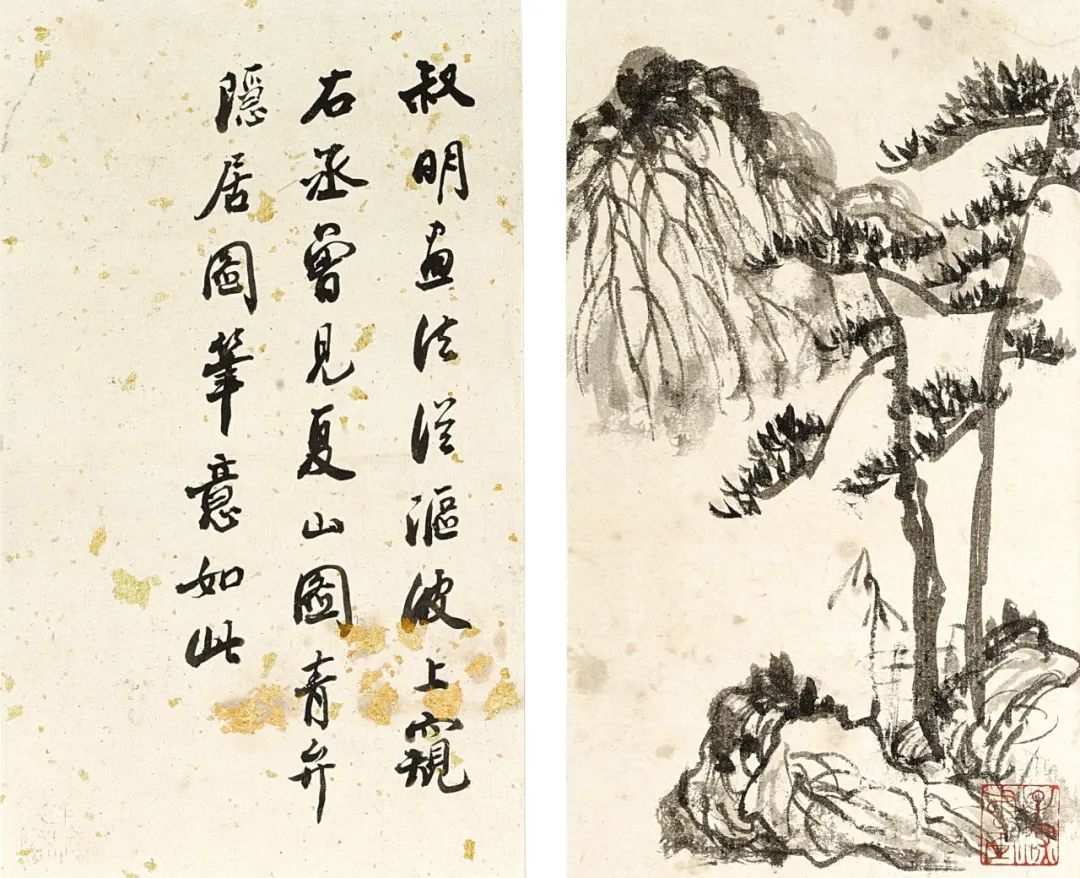 叔明畫法從漚波上窺
右丞曾見夏山圖青弁
隱居圖筆意如此